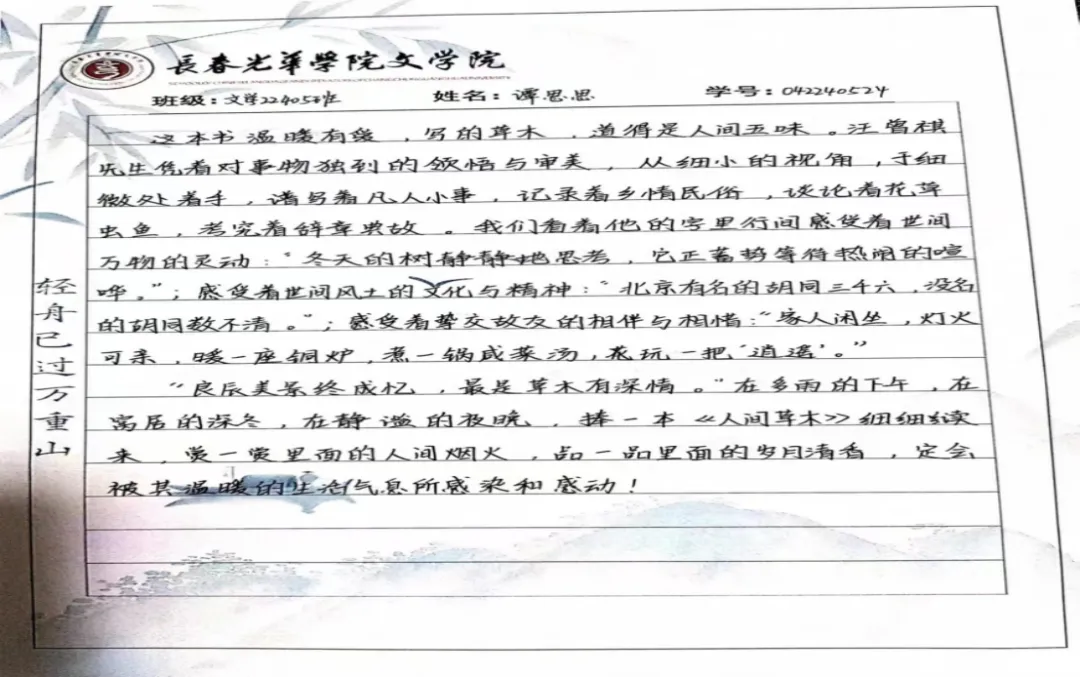 長春光華學院文学院
班级：文学22405班 姓名：谭思思 学号：042240524
这本书温暖有爱，写的草木，道得是人间五味。汪曾祺
先生凭着对事物独到的领悟与审美，从细小的视角，于细
微处着手，谱写着凡人小事，记录着乡情民俗，谈论着花草
虫鱼，考究着辞章典故。我们看着他的字里行间感受着世间
万物的灵动：“冬天的树静静地思考，它正蓄势等待热闹的喧
哗。”；感受着世间风土的文化与精神：“北京有名的胡同三千六，没名
的胡同数不清。”；感受着挚交故友的相伴与相惜：“家人闲坐，灯火
可亲，暖一座铜炉，煮一锅咸菜汤，来玩一把‘逍遥’。”
“良辰美景终成忆，最是草木有深情。”在多雨的下午，在
寓居的深冬，在静谧的夜晚，捧一本《人间草木》细细读
来，赏一赏里面的人间烟火，品一品里面的岁月清香，定会
被其温暖的生活气息所感染和感动！
轻舟已过万重山